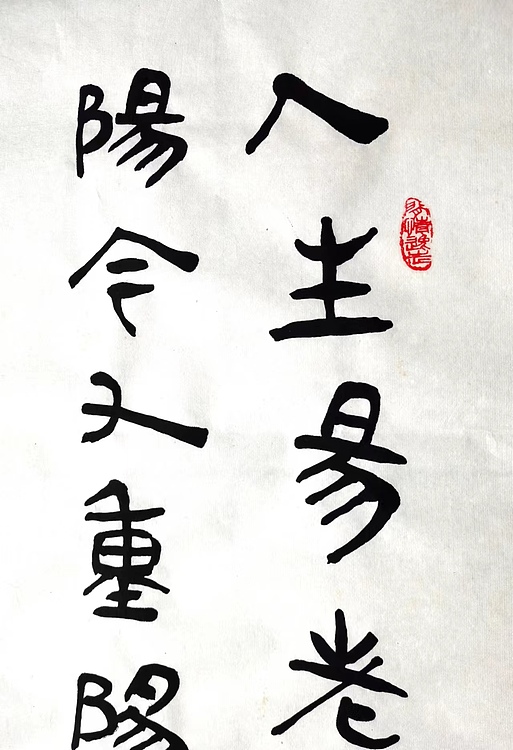 人生易老
陽今又重陽